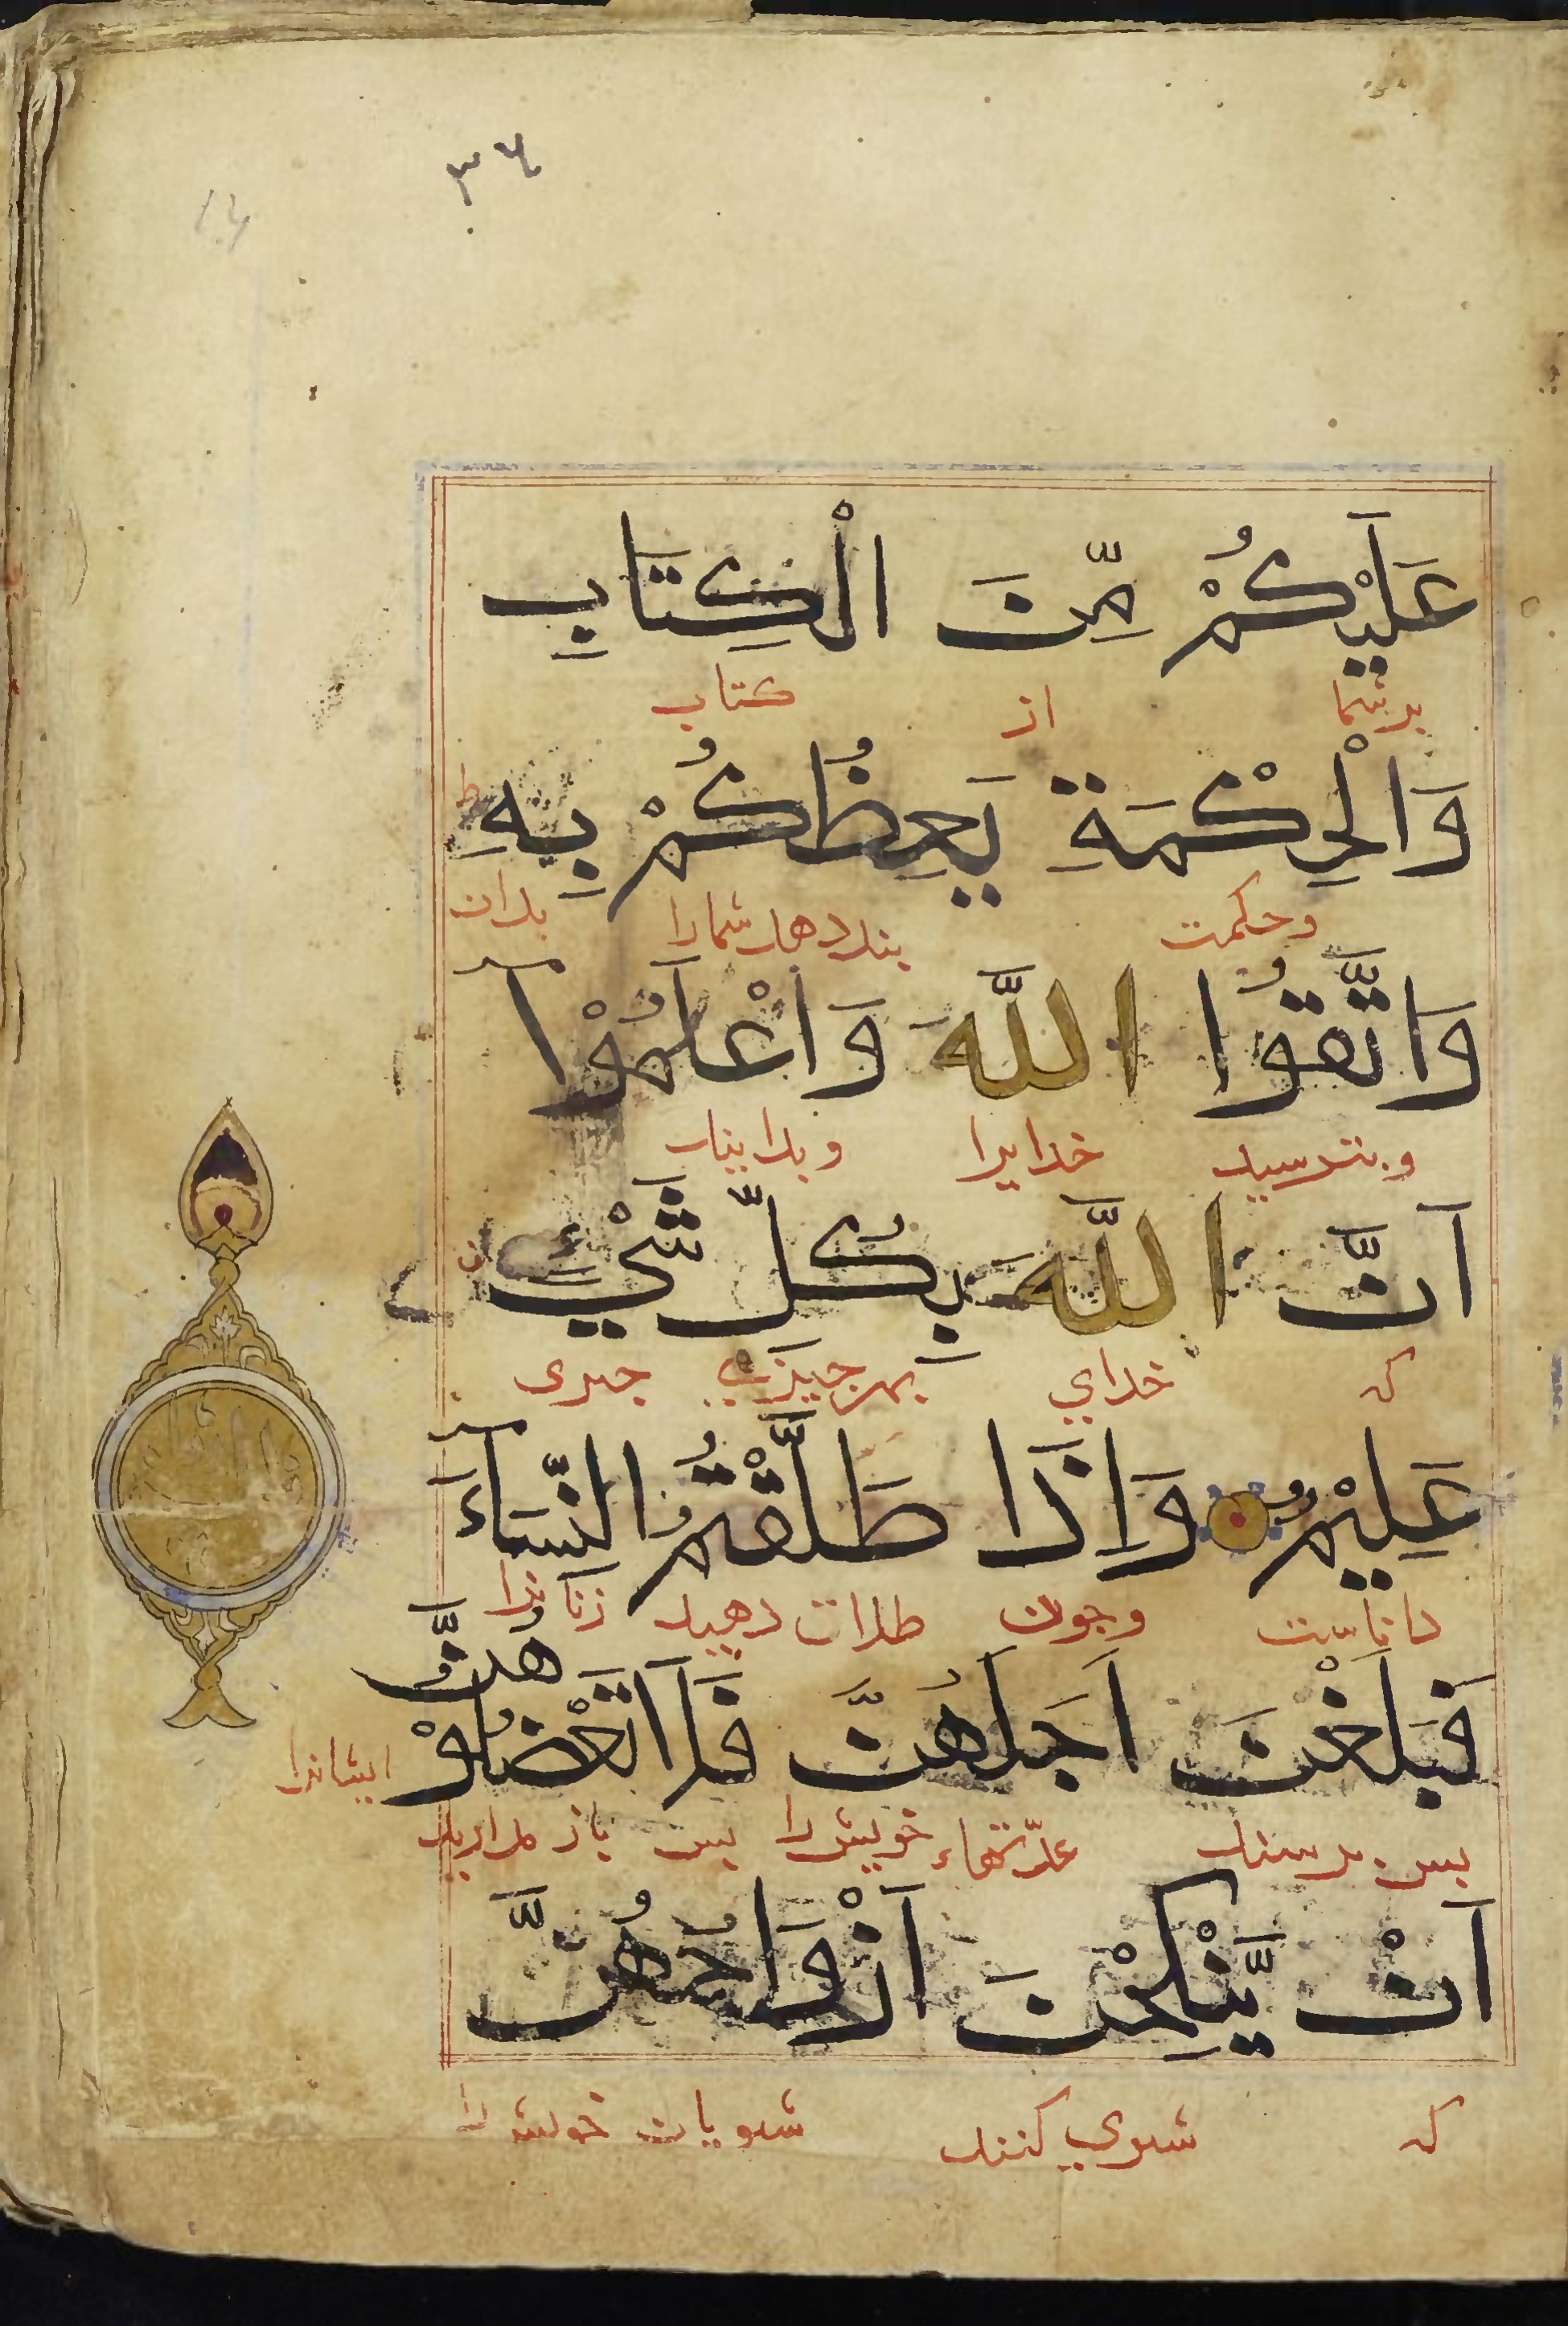 ٣٤
عَلَيْكُمْ مِّنَ الْكِتَابِ
برشما از كتاب
وَالْحِكْمَةِ يَعِظُكُمْ بِهِ ط
وحكمت بندد هد شمارا بدان
وَاتَّقُوا اللَّهَ وَاعْلَمُوْا
و بترسيد خدايرا و بدانيد
اَنَّ اللَّهَ بِكُلِّ شَيْءٍ
كه خداي بهر چيزي
عَلِيْمٌ وَاِذَا طَلَّقْتُمُ النِّسَآءَ
داناست وجون طلاق دهيد زنانرا
فَبَلَغْنَ اَجَلَهُنَّ فَلَا تَعْضُلُوْهُنَّ
بس برسند عدّتهاء خويش را بس باز مداريد ايشانرا
اَنْ يَّنْكِحْنَ اَزْوَاجَهُنَّ
كه شوي كنند شويان خويش را